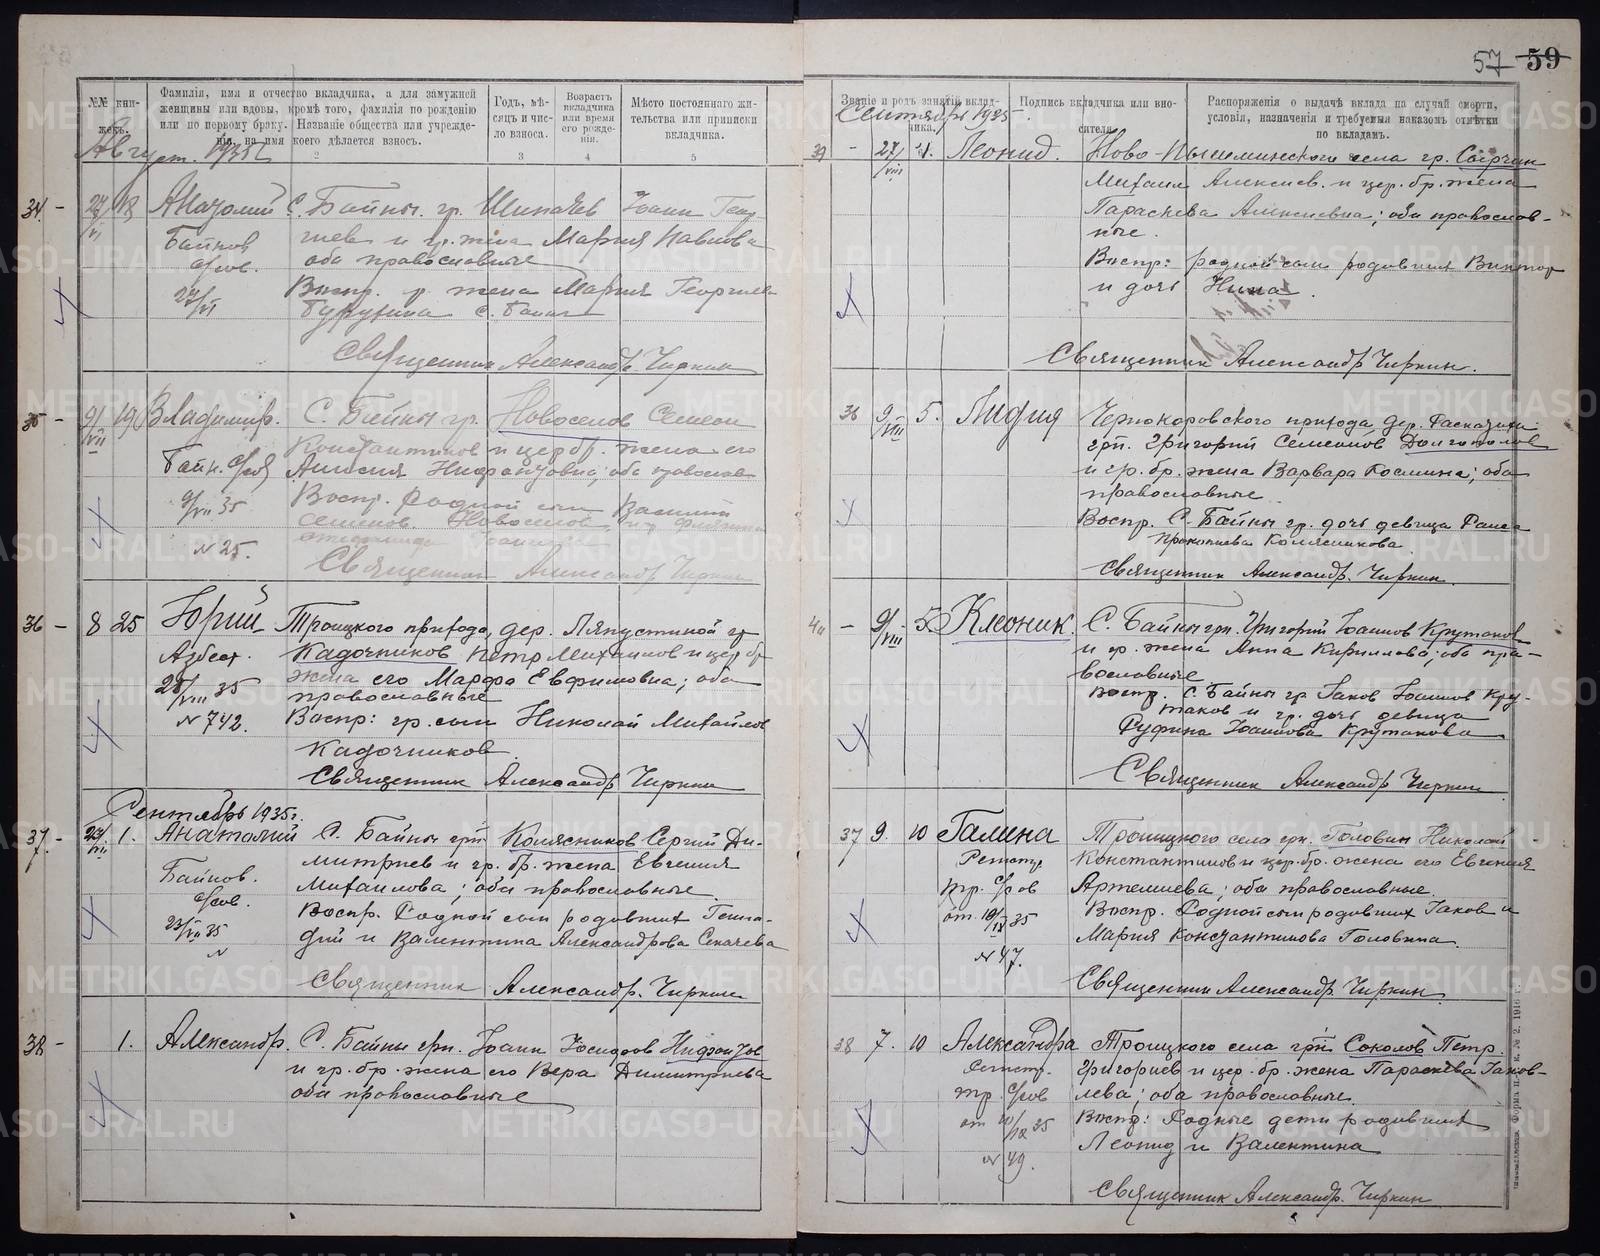 №№ кни-
жекъ.
Фамилія, имя и отчество вкладчика, а для замужней
женщины или вдовы, кромѣ того, фамилія по рожденію
или по первому браку. Названіе общества или учрежде-
нія, на имя коего дѣлается взносъ.
Годъ, мѣ-
сяцъ и чис-
ло взноса.
Возрастъ
вкладчика
или время
его рожде-
нія.
Мѣсто постояннаго жи-
тельства или приписки
вкладчика.
2 3 4 5
Август. 1935 г
34 - 18 Анатолий С. Байны. гр. Шипачев Іоанн Геор
гиев и гр. жена Мария Павлова
Байнов
с/сов.
оба православные
27/VI
Воспр. гр. жена Мария Георгиева
с. Байны
Священник Александр Чиркин
35 - 9/VII 19 Владимир. С. Байны гр. Новоселов Семеон
Константинов и цер бр. жена его
Байн. с/сов Анисия Нифонтовна; оба православ
9/VII 35
Воспр. Родной сын Василий
Семенов Новоселов и
№ 25.
Священник Александр Чиркин
36 - 8 25 Юрий Троицкого прихода, дер. Ляпустиной гр
Азбест. Кадочников Петр Михаилов и цер бр
жена его Марфа Евфимовна; оба
28/VIII 35
православные
№ 742. Воспр: гр. сын Николай Михайлов
Кадочников
Священник Александр Чиркин
Сентябрь 1935 г.
37 - 23/VII 1. Анатолий С. Байны грн Колясников Сергий Ди-
митриев и гр. бр. жена Евгения
Байнов. Михаилова; оба православные
с/сов.
Воспр. Родной сын родивших Генна-
23/VII 35
дий и Валентина Александрова Секачева
№
Священник Александр. Чиркин
38 - 1. Александр. С. Байны грн. Іоанн Іосифов Нифонтов
и гр. бр. жена его Вера Димитриева
оба православные
57 59
Званіе и родъ занятій вклад-
чика.
Подпись вкладчика или вно-
сителя.
Распоряженія о выдачѣ вклада на случай смерти,
условія, назначенія и требуемыя наказомъ отмѣтки
по вкладамъ.
Сентябрь 1935.
39 - 27/VIII 1. Леонид. Ново-Пышминского села гр. Сырчин
Михаил Алексиев. и цер. бр. жена
Параскева Алексиевна; оба православ-
ные.
Воспр: родной сын родивших Виктор
и дочь Нина.
Священник Александр Чиркин.
36 9/VIII 5. Лидия Чернокоровского прихода дер. Расказихи
грн. Григорий Семеонов Долгополов
и гр. бр. жена Варвара Космина; оба
православные
Воспр. С. Байны гр. дочь девица Раиса
Прокопиева Колясникова.
Священник Александр. Чиркин.
40 - 9/VIII 5 Клеоник. С. Байны грн. Григорий Іоаннов Крутаков
и гр. жена Анна Кириллова; оба пра-
вославные
Воспр. С. Байны гр Іаков Іоаннов Кру-
таков и гр. дочь девица
Руфина Іоаннова Крутакова
Священник Александр Чиркин
37 9. 10 Галина Троицкого села грн. Головин Николай
Регистр Константинов и цер. бр. жена его Евгения
тр. с/сов Артемиева; оба православные.
от 19/IX 35 Воспр. Родной сын родивших Іаков и
Мария Константинова Головина.
№ 47.
Священник Александр Чиркин.
38 7. 10 Александра Троицкого села грн Соколов Петр.
Регистр. Григориев и цер. бр. жена Параскева Іаков-
тр. с/сов лева; оба православные.
от 10/IX 35 Воспр: Родные дети родивших
Леонид и Валентина
№ 49.
Священник Александр. Чиркин
METRIKI.GASO-URAL.RU